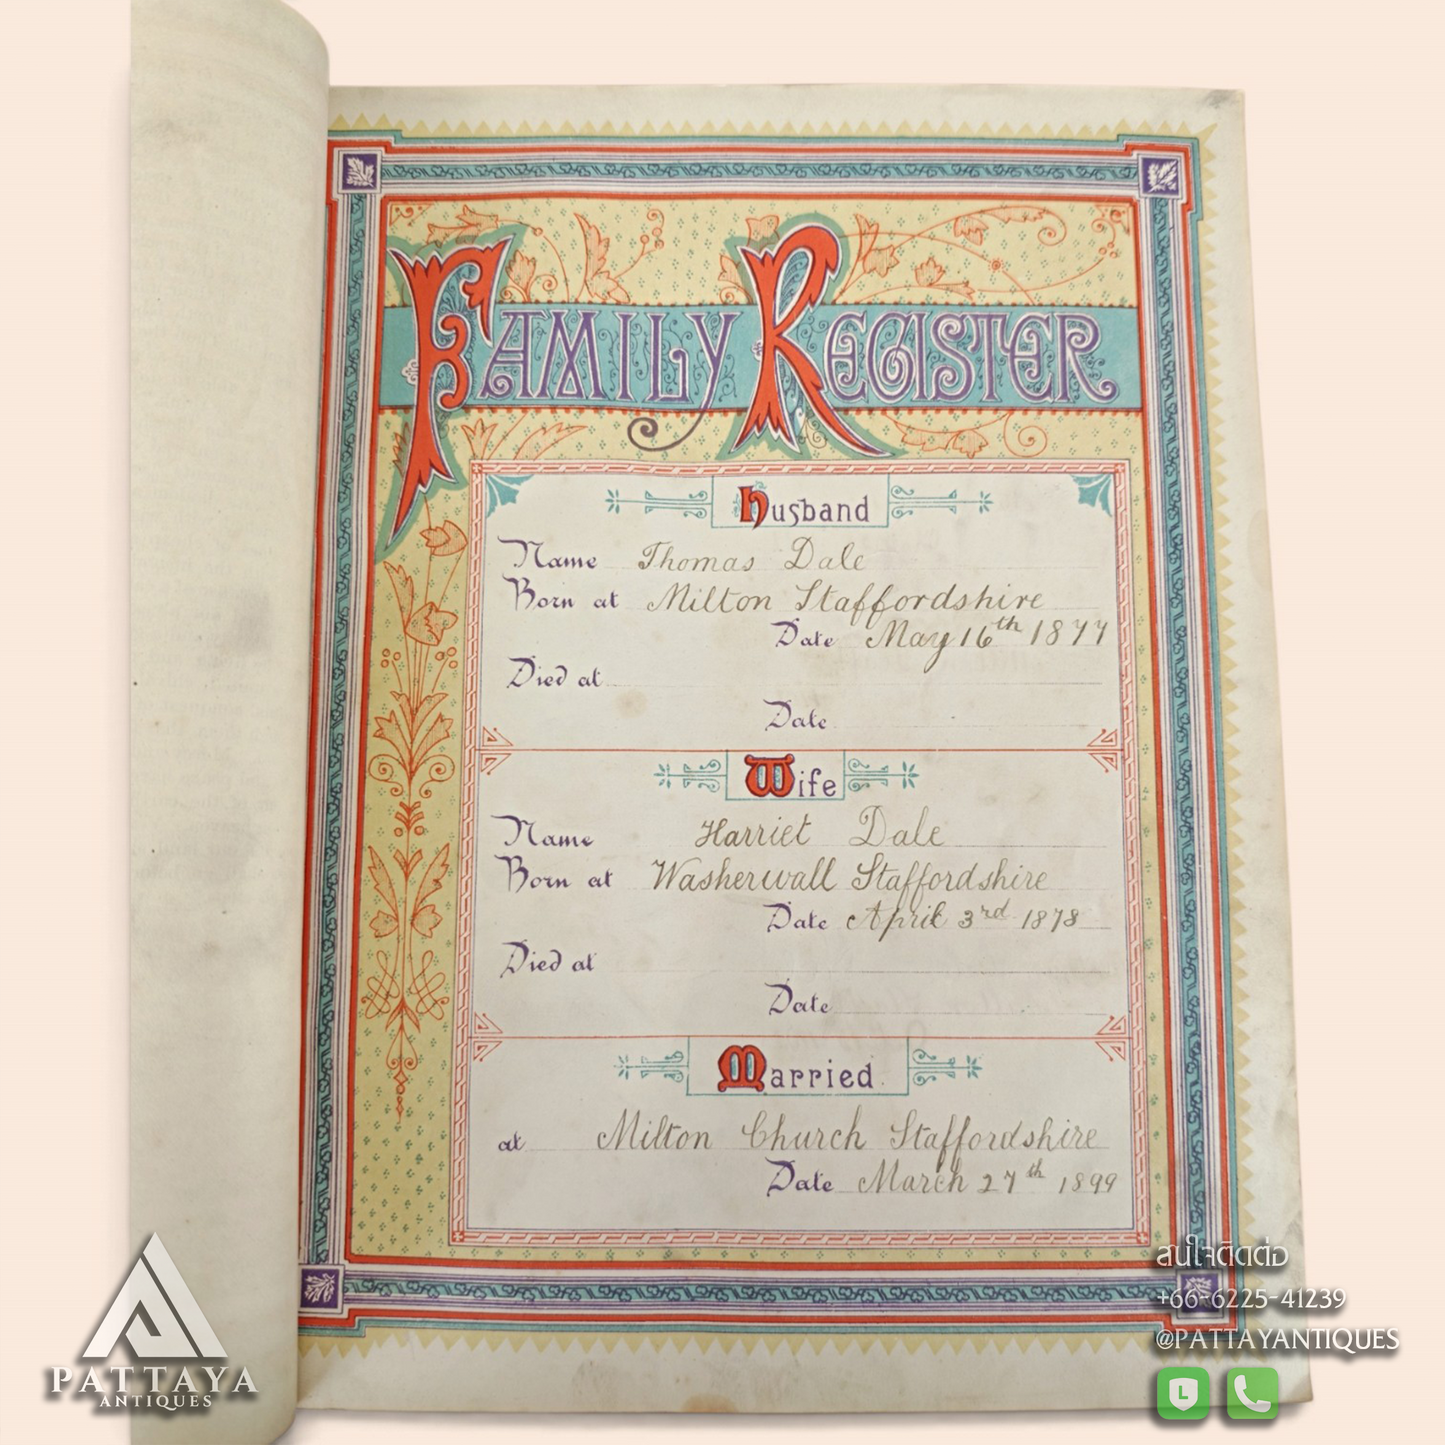 Family Register
Husband
Name Thomas Dale
Born at Milton Staffordshire
Date May 16th 1877
Died at
Date
Wife
Name Harriet Dale
Born at Washerwall Staffordshire
Date April 3rd 1878
Died at
Date
Married
at Milton Church Staffordshire
Date March 27th 1899
PATTAYA
ANTIQUES
สนใจติดต่อ
+66-6225-41239
@PATTAYANTIQUES
L